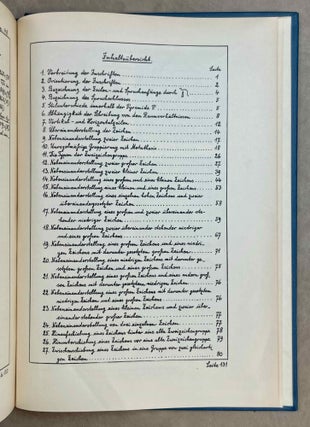 Inhaltsübersicht.
Seite
1. Verbreitung der Inschriften 1
2. Orientierung der Inschriften 2
3. Bezeichnung der Zeilen- und Spruchanfänge durch 4
4. Bezeichnung des Spruchschlusses 5
5. Steinverbände innerhalb der Pyramide
6. Abhängigkeit der Schreibung von den Raumverhältnissen 8
7. Vertikal- und Horizontalzeilen 12
8. Übereinanderstellung der Zeichen 14
9. Nebeneinanderstellung zweier Zeichen
10. Zwanghafte Gruppierung mit Metathese 18
11. Die Typen der Zweizeichengruppe 26
12. Nebeneinanderstellung zweier großer Zeichen 27
13. Nebeneinanderstellung zweier kleiner Zeichen 39
14. Nebeneinanderstellung eines großen und eines kleinen Zeichens 44
15. Nebeneinanderstellung eines kleinen und eines großen Zeichens 63
16. Nebeneinanderstellung eines einzelnen hohen Zeichens und zweier
übereinandergesetzter Zeichen
17. Nebeneinanderstellung eines großen und zweier übereinander ste-
hender niedriger Zeichen
18. Nebeneinanderstellung zweier übereinander stehender niedriger
und eines großen Zeichens
19. Nebeneinanderstellung eines großen Zeichens und eines niedri-
gen Zeichens mit darunter gesetztem großen Zeichen 71
20. Nebeneinanderstellung eines niedrigen Zeichens mit darunter ge-
setztem großen Zeichen und eines großen Zeichens
21. Nebeneinanderstellung eines großen Zeichens und eines
großen Zeichens mit darunter gesetztem niedrigen Zeichen
22. Nebeneinanderstellung eines großen Zeichens mit darunter gesetztem
niedrigen Zeichen und eines großen Zeichens
23. Nebeneinanderstellung eines kleinen Zeichens und zweier über-
einander stehender großer Zeichen 77
24. Nebeneinanderstellung von drei einzelnen Zeichen 77
25. Hinaufschiebung eines Zeichens hinter eine alte Zweizeichengruppe 78
26. Hinunterschiebung eines Zeichens vor eine alte Zweizeichengruppe 79
27. Zwischenschiebung eines Zeichens in eine Gruppe von zwei gleicharti-
gen Zeichen 80
Seite 131